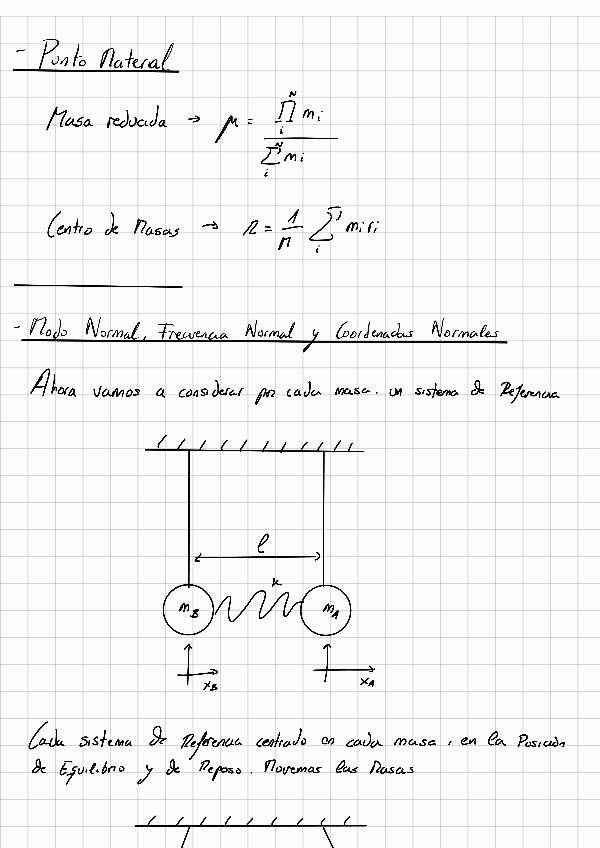 - Punto Material
Masa reducida → μ = \frac{\prod_{i}^{N} m_i}{\sum_{i}^{N} m_i}
Centro de Masas → R = \frac{1}{M} \sum_{i} m_i r_i
- Modo Normal, Frecuencia Normal y Coordenadas Normales
Ahora vamos a considerar por cada masa, un sistema de Referencia
l
k
m_B m_A
x_B x_A
Cada sistema de Referencia centrado en cada masa, en la Posición
de Equilibrio y de Reposo. Movemas las Masas